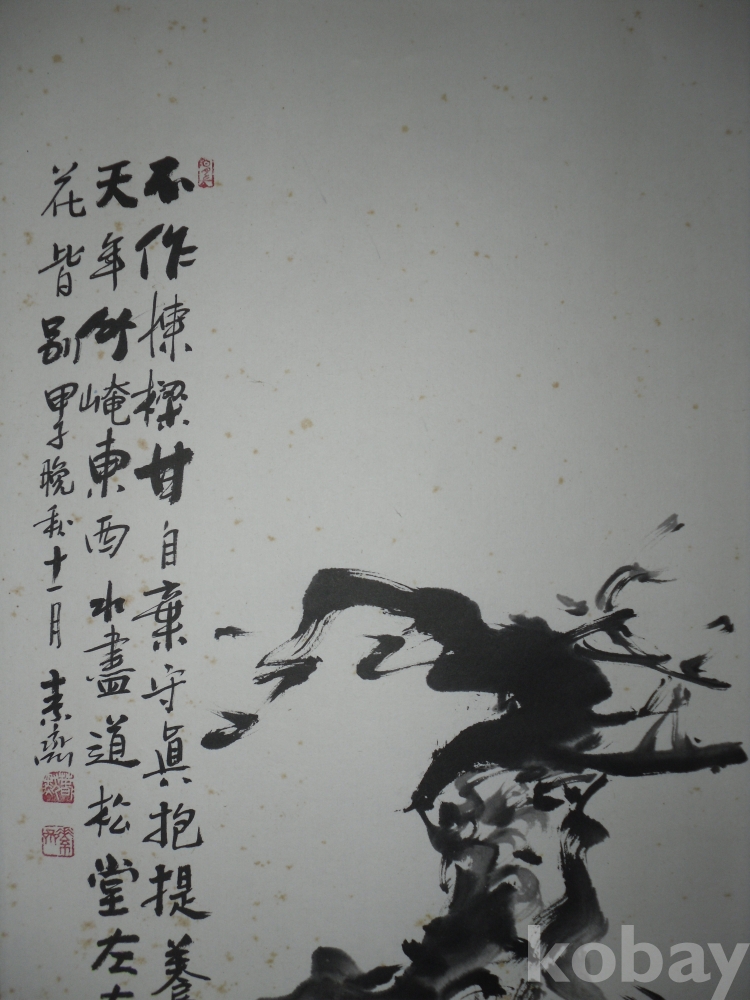 不作揀樑甘自棄守眞抱提養
天年竹崦東西水盡道松堂左右
花皆別 甲子晩秋十一月 素齋
kobay